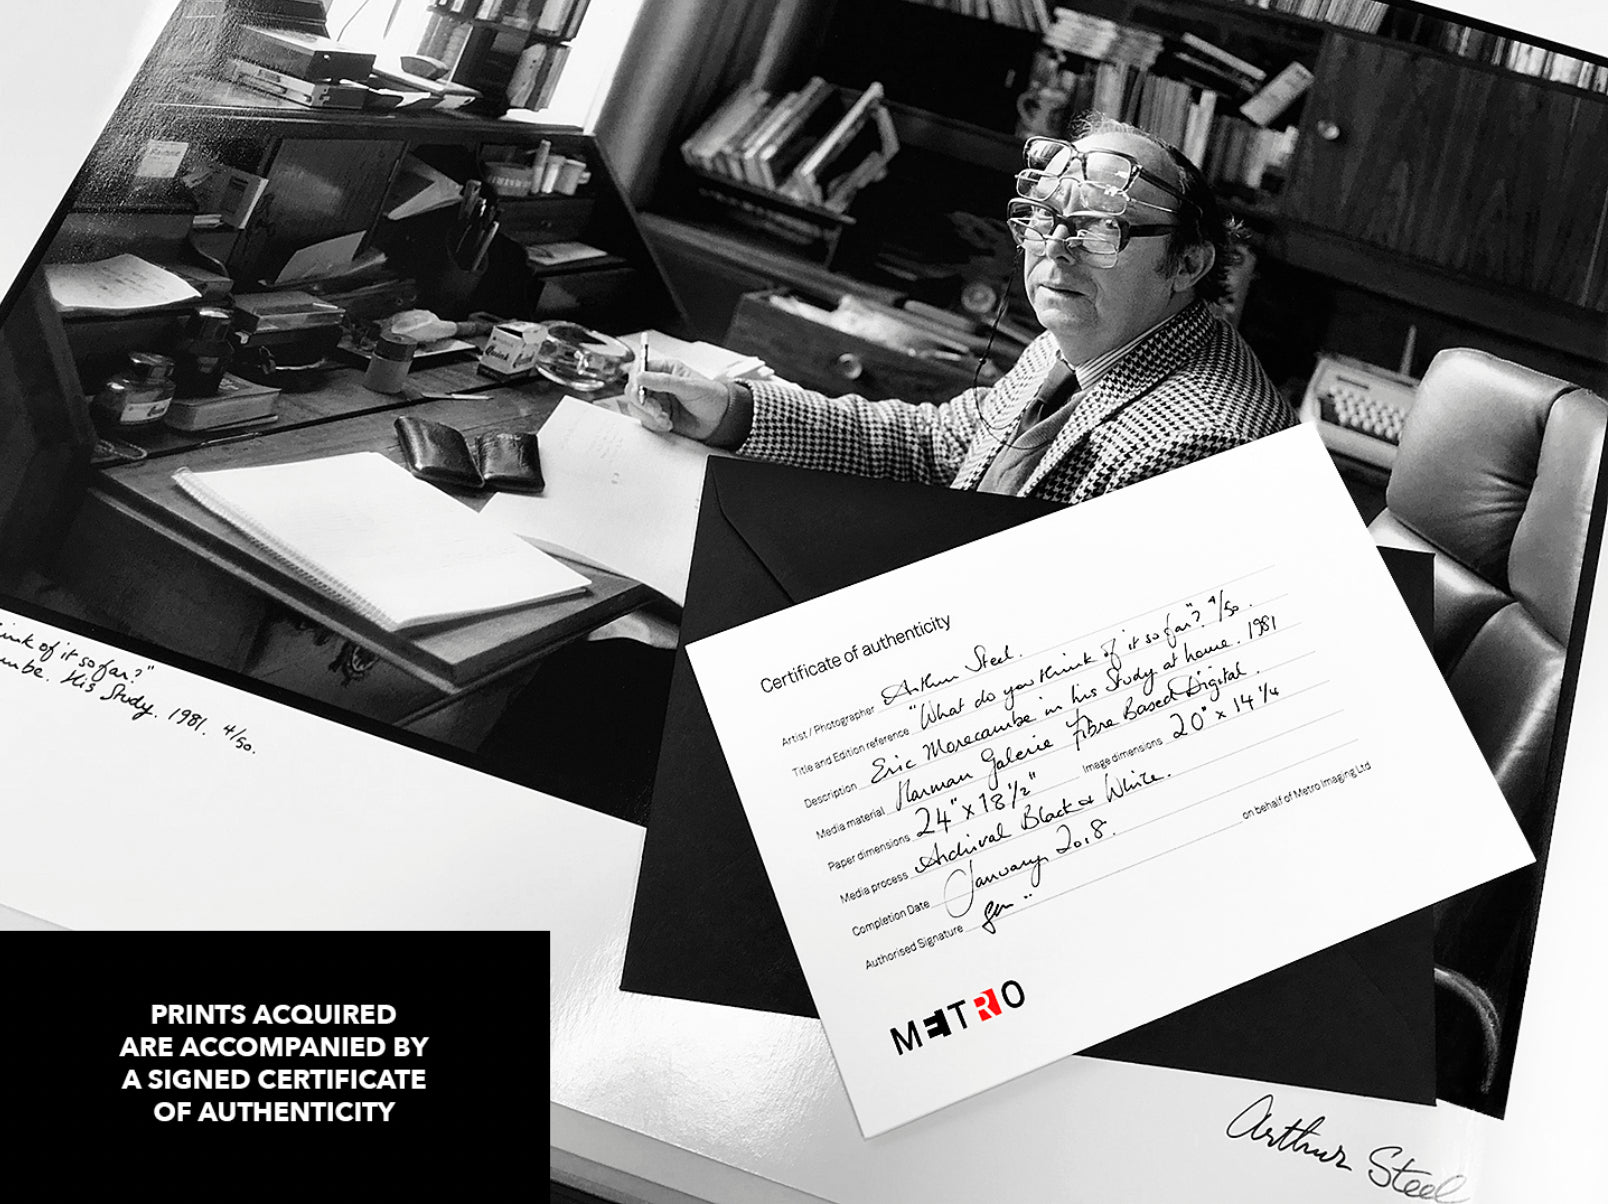 ink of it so far?"
mbe. His Study. 1981. 4/50.
Certificate of authenticity
Artist / Photographer Arthur Steel.
Title and Edition reference "What do you think of it so far?" 4/50.
Description Eric Morecambe in his Study at home. 1981
Media material Harman Galerie Fibre Based Digital.
Paper dimensions 24" x 18 1/2" Image dimensions 20" x 14 1/4
Media process Archival Black & White.
Completion Date January 2018.
Authorised Signature on behalf of Metro Imaging Ltd
METRO
PRINTS ACQUIRED
ARE ACCOMPANIED BY
A SIGNED CERTIFICATE
OF AUTHENTICITY
Arthur Steel